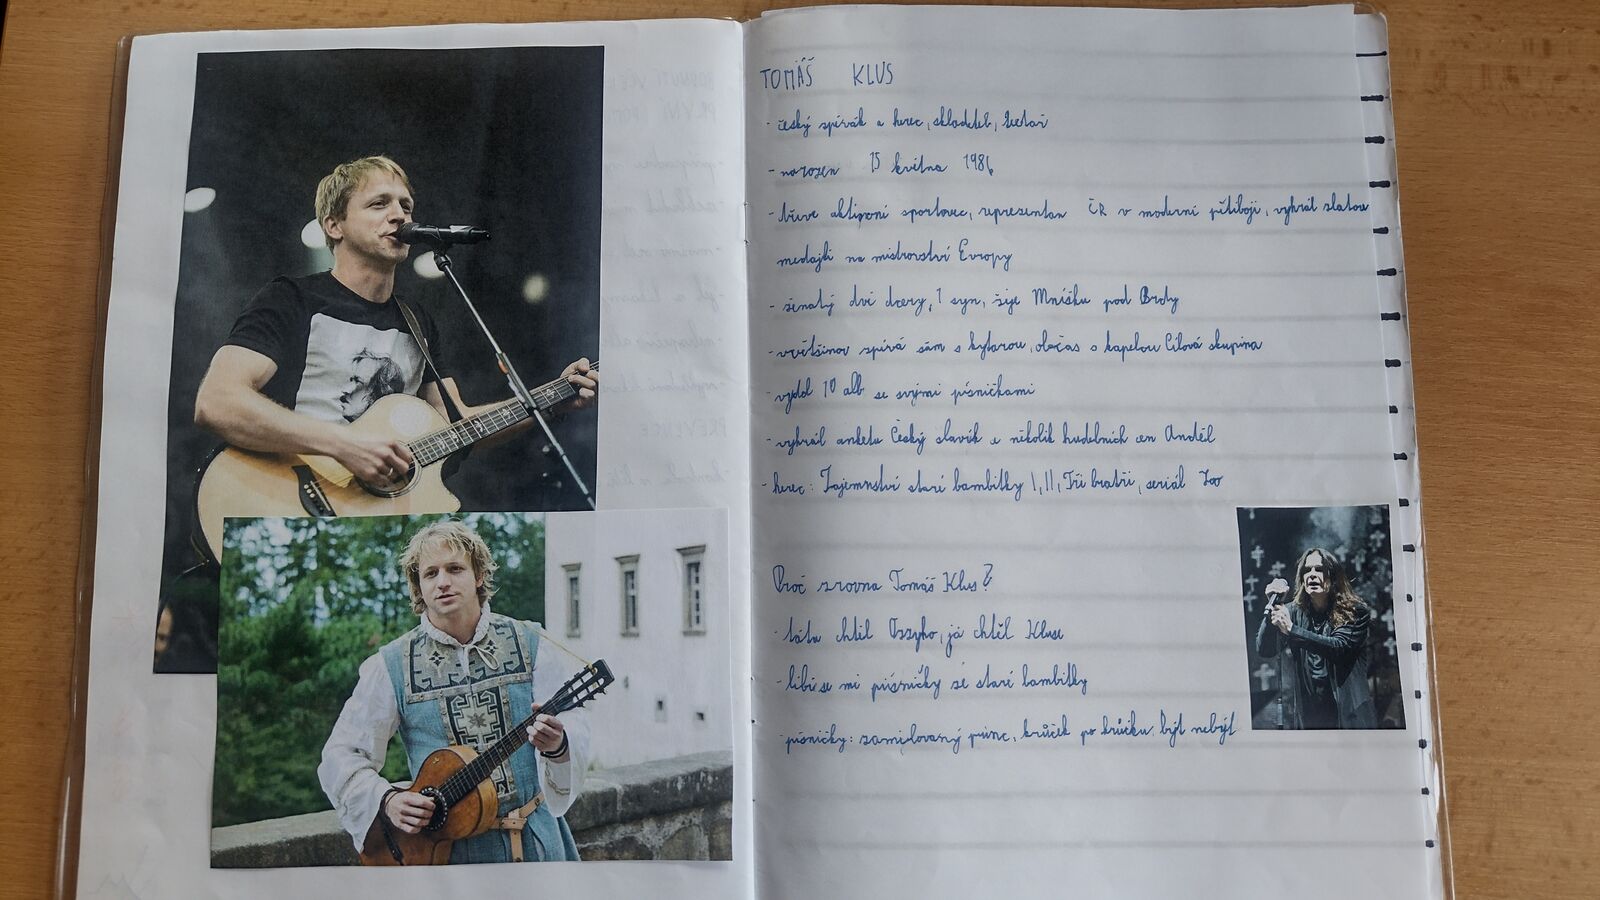 TOMÁŠ KLUS
- český zpívák a herec, skladatel, textař
- narozen 15 května 1986
- dříve aktivní sportovec, reprezentan ČR v moderní pětiboji, vyhrál zlatou
medajli na mistrovství Evropy
- ženatý dvě dcery, 1 syn, žije Mníšku pod Brdy
- vvětšinov zpívá sám s kytarou, občas s kapelou Cílová skupina
- vydal 10 alb se svými písničkami
- vyhrál anketu Český slavík a několik hudebních cen Anděl
- herec: Tajemnství staré bambitky I, II, Tři bratři, seriál Zoo
Proč zrovna Tomáš Klus?
- táta chtěl Ozzyho, já chtěl Kluse
- líbí se mi písničky ze staré bambitky
- písničky: zamilovaný princ, krůček po krůčku, být nebýt
PREVENCE